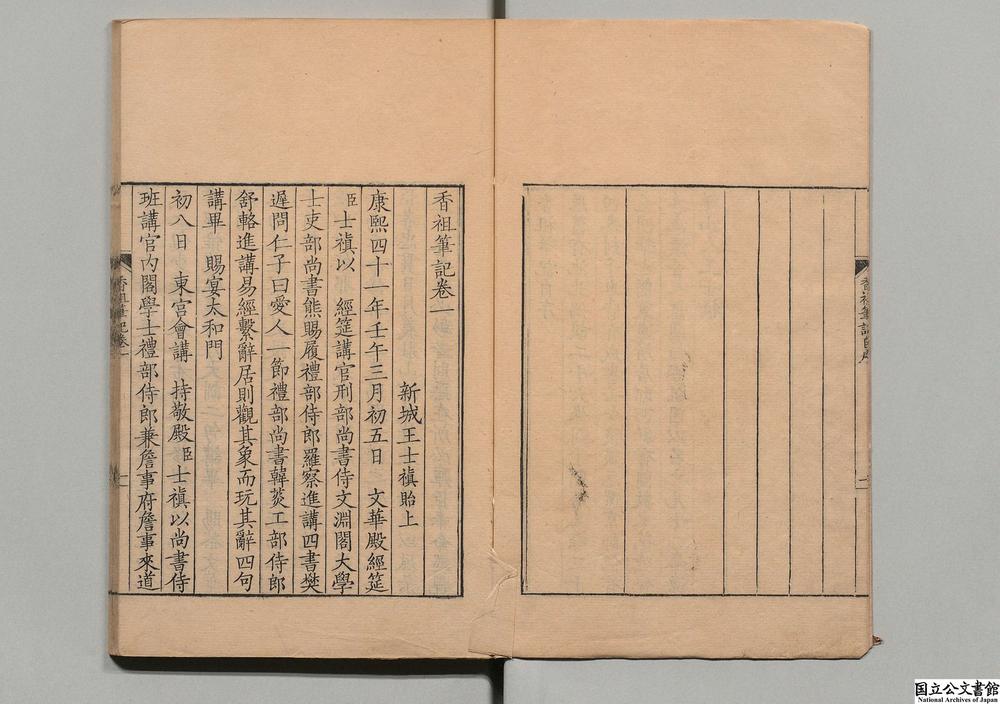 香祖筆記卷一
新城王士禛貽上
康熙四十一年壬午三月初五日 文華殿經筵
臣士禛以 經筵講官刑部尚書侍文淵閣大學
士吏部尚書熊賜履禮部侍郎羅察進講四書樊
遲問仁子曰愛人一節禮部尚書韓菼工部侍郎
舒輅進講易經繫辭居則觀其象而玩其辭四句
講畢 賜宴太和門
初八日 東宮會講 持敬殿臣士禛以尚書侍
班講官內閣學士禮部侍郎兼詹事府詹事來道
香祖筆記卷一
一
香祖筆記自序
国立公文書館
National Archives of Japan